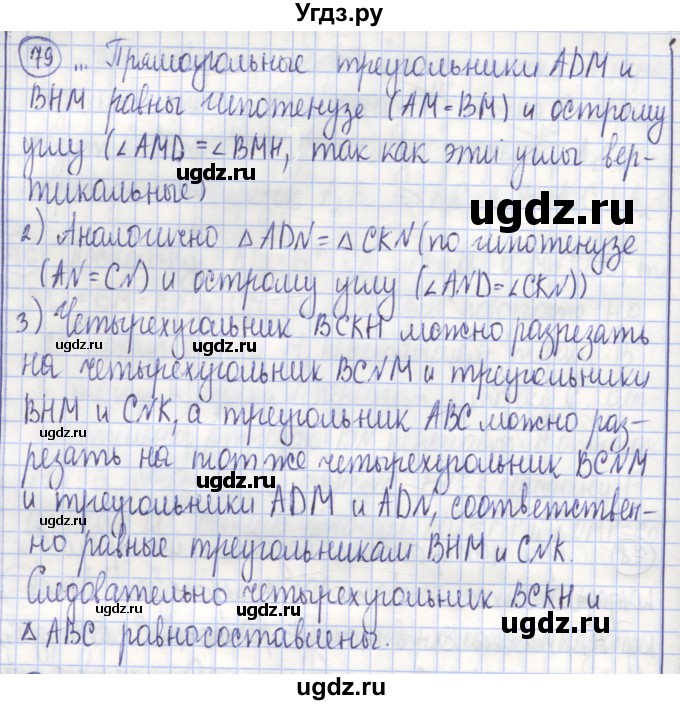 Угдз.ру
79 ... Прямоугольные треугольники ADM и
BHM равны гипотенузе (AM=BM) и острому
углу (∠AMD=∠BMH, так как эти углы вер-
тикальные)
2) Аналогично △ADN=△CKN (по гипотенузе
(AN=CN) и острому углу (∠AND=∠CKN))
3) Четырехугольник BCKH можно разрезать
на четырехугольник BCNM и треугольники
BHM и CNK, а треугольник ABC можно раз-
резать на тот же четырехугольник BCNM
и треугольники ADM и ADN, соответствен-
но равные треугольникам BHM и CNK.
Следовательно четырехугольник BCKH и
△ABC равносоставлены.
ugdz.ru
ugdz.ru
ugdz.ru
ugdz.ru
ugdz.ru
ugdz.ru
ugdz.ru
ugdz.ru
ugdz.ru
ugdz.ru
ugdz.ru
ugdz.ru
ugdz.ru